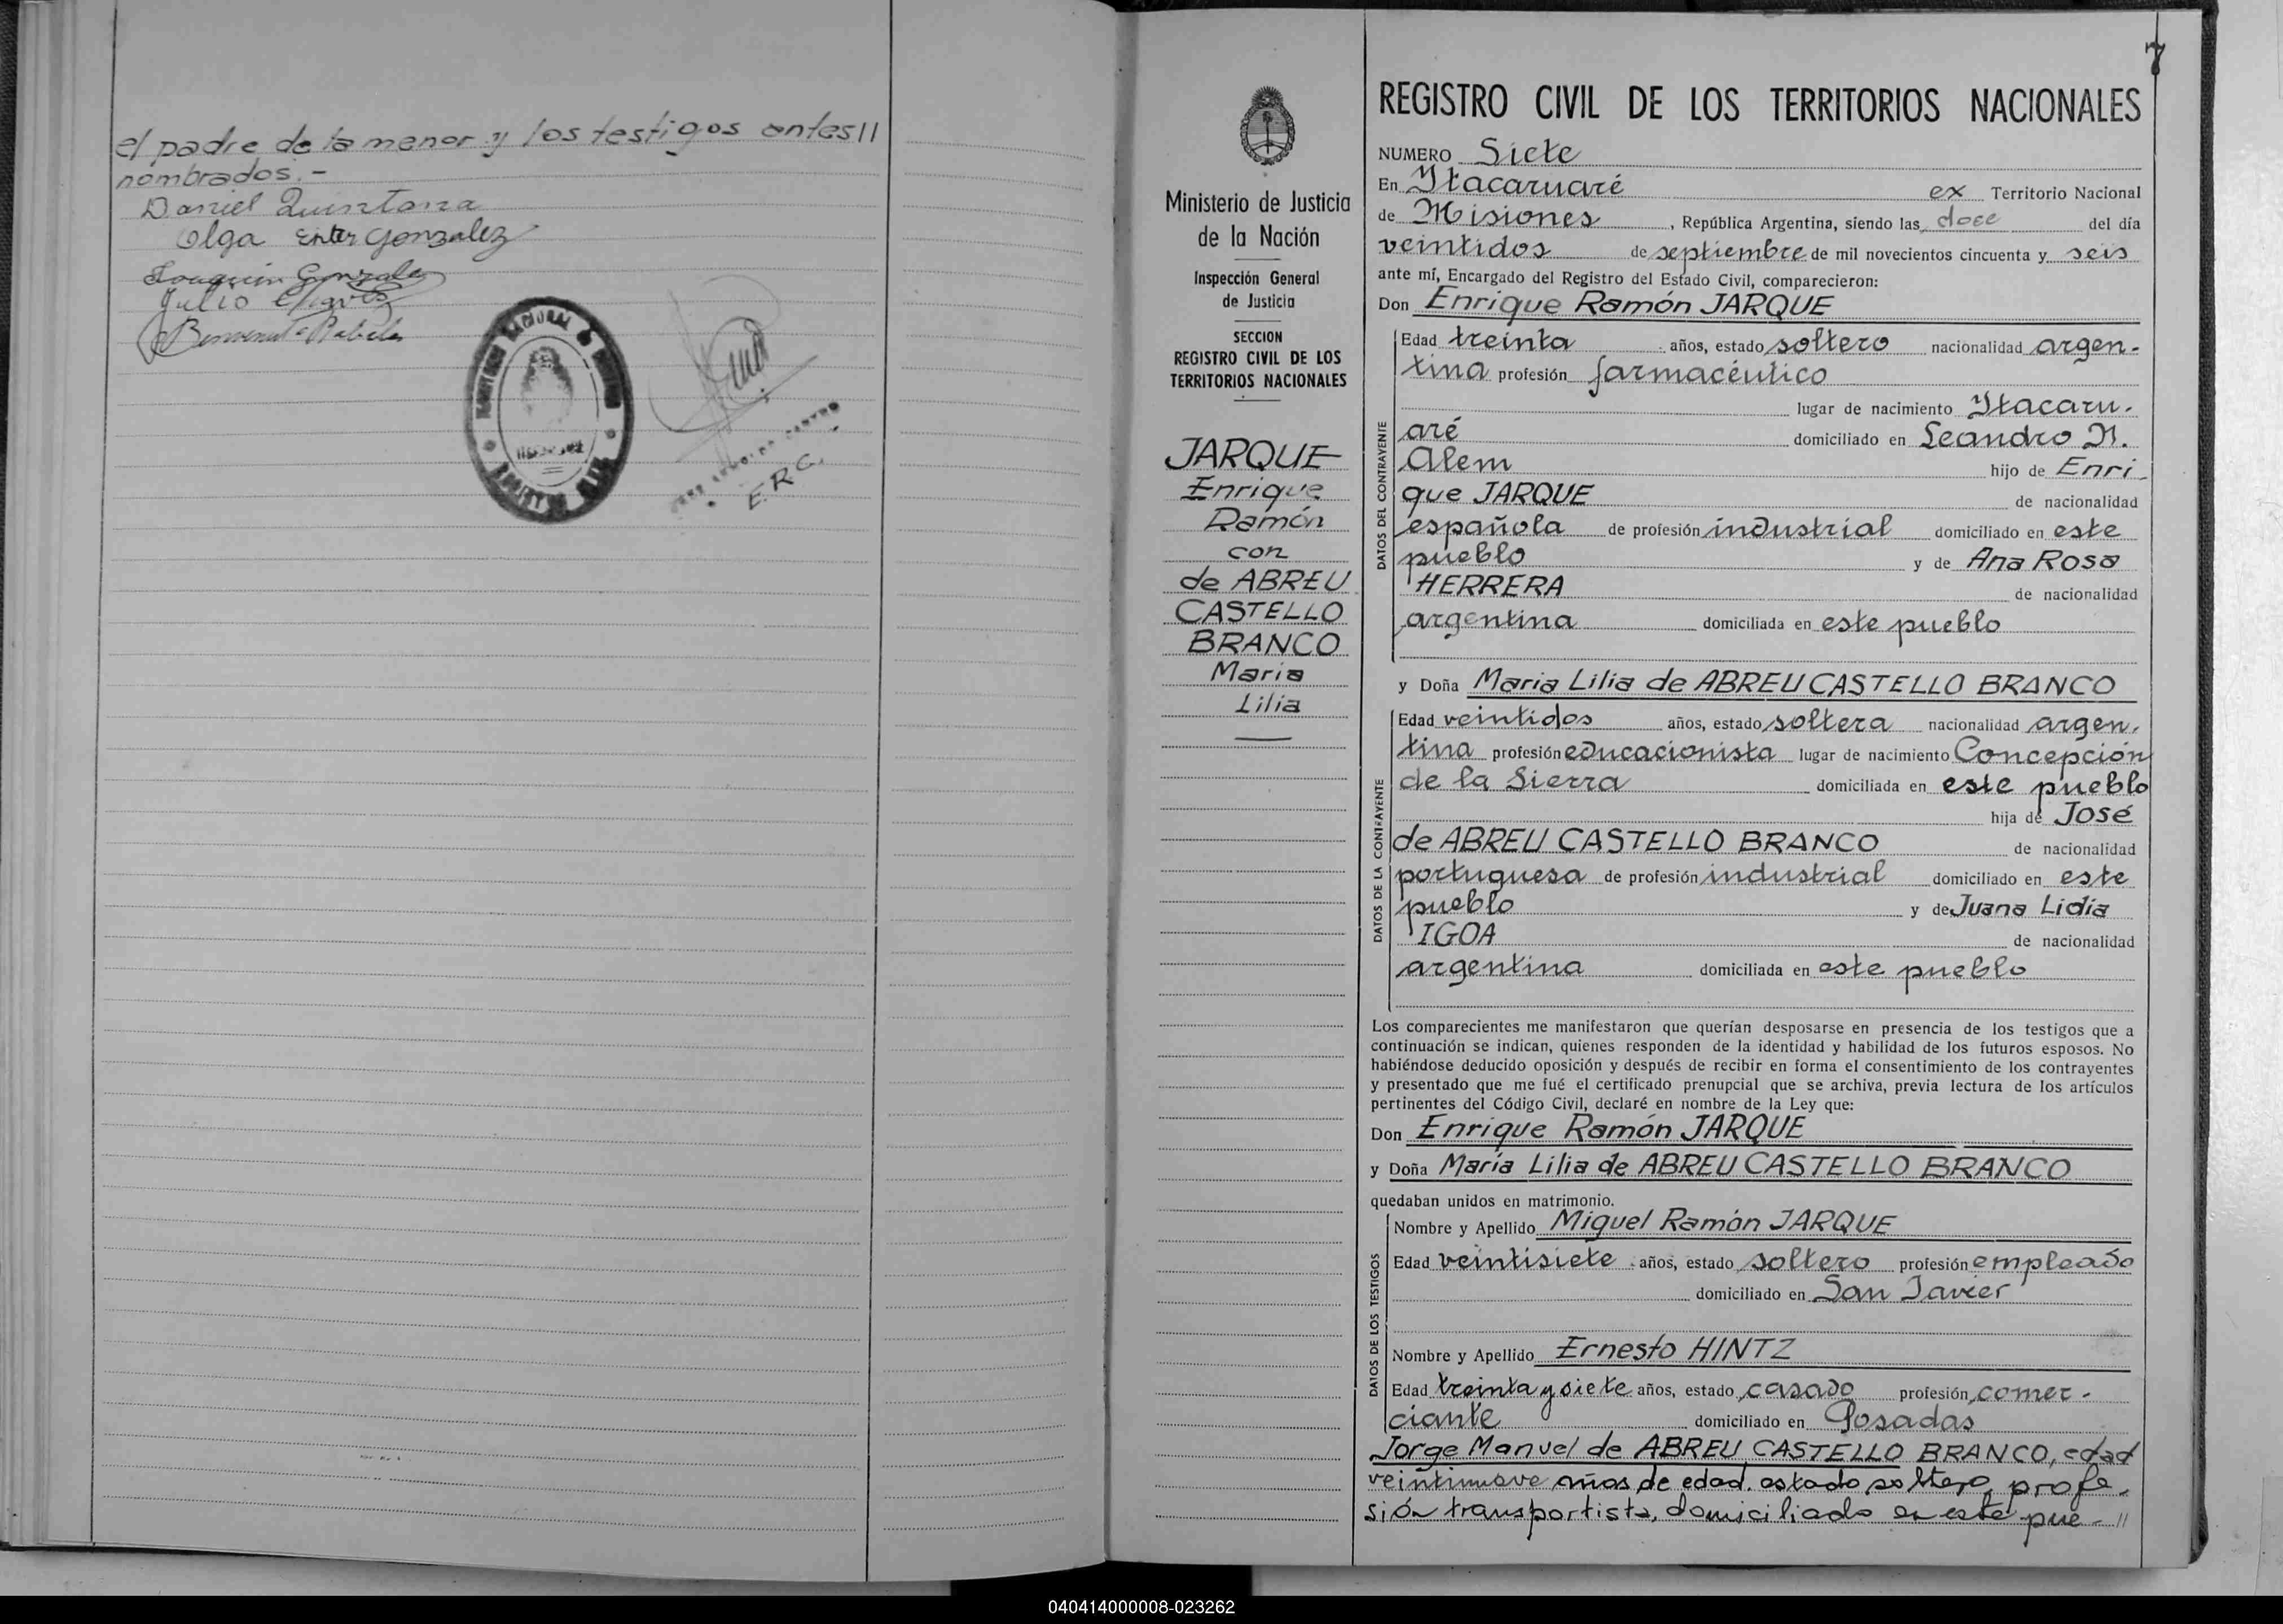 el padre de la menor y los testigos antes//
nombrados.-
Daniel Quintana
Olga Ester Gonzalez
Joaquin Gonzalez
Julio
E.R.C.
7
REGISTRO CIVIL DE LOS TERRITORIOS NACIONALES
NUMERO Siete
En Itacaruaré ex Territorio Nacional
de Misiones, República Argentina, siendo las doce del día
veintidos de septiembre de mil novecientos cincuenta y seis
ante mí, Encargado del Registro del Estado Civil, comparecieron:
Don Enrique Ramón JARQUE
Edad treinta años, estado soltero nacionalidad argen-
tina profesión farmacéutico
lugar de nacimiento Itacaru-
aré domiciliado en Leandro N.
Alem hijo de Enri-
que JARQUE de nacionalidad
española de profesión industrial domiciliado en este
pueblo y de Ana Rosa
HERRERA de nacionalidad
argentina domiciliada en este pueblo
DATOS DEL CONTRAYENTE
y Doña Maria Lilia de ABREU CASTELLO BRANCO
Edad veintidos años, estado soltera nacionalidad argen-
tina profesión educacionista lugar de nacimiento Concepción
de la Sierra domiciliada en este pueblo
hija de José
de ABREU CASTELLO BRANCO de nacionalidad
portuguesa de profesión industrial domiciliado en este
pueblo y de Juana Lidia
IGOA de nacionalidad
argentina domiciliada en este pueblo
DATOS DE LA CONTRAYENTE
Los comparecientes me manifestaron que querían desposarse en presencia de los testigos que a
continuación se indican, quienes responden de la identidad y habilidad de los futuros esposos. No
habiéndose deducido oposición y después de recibir en forma el consentimiento de los contrayentes
y presentado que me fué el certificado prenupcial que se archiva, previa lectura de los artículos
pertinentes del Código Civil, declaré en nombre de la Ley que:
Don Enrique Ramón JARQUE
y Doña María Lilia de ABREU CASTELLO BRANCO
quedaban unidos en matrimonio.
Nombre y Apellido Miguel Ramón JARQUE
Edad veintisiete años, estado soltero profesión empleado
domiciliado en San Javier
Nombre y Apellido Ernesto HINTZ
Edad treinta y siete años, estado casado profesión comer-
ciante domiciliado en Posadas
DATOS DE LOS TESTIGOS
Jorge Manuel de ABREU CASTELLO BRANCO, edad
veintinueve años de edad, estado soltero, profe-
sión transportista, domiciliado en este pue-//
Ministerio de Justicia
de la Nación
Inspección General
de Justicia
SECCION
REGISTRO CIVIL DE LOS
TERRITORIOS NACIONALES
JARQUE
Enrique
Ramón
con
de ABREU
CASTELLO
BRANCO
Maria
Lilia
040414000008-023262